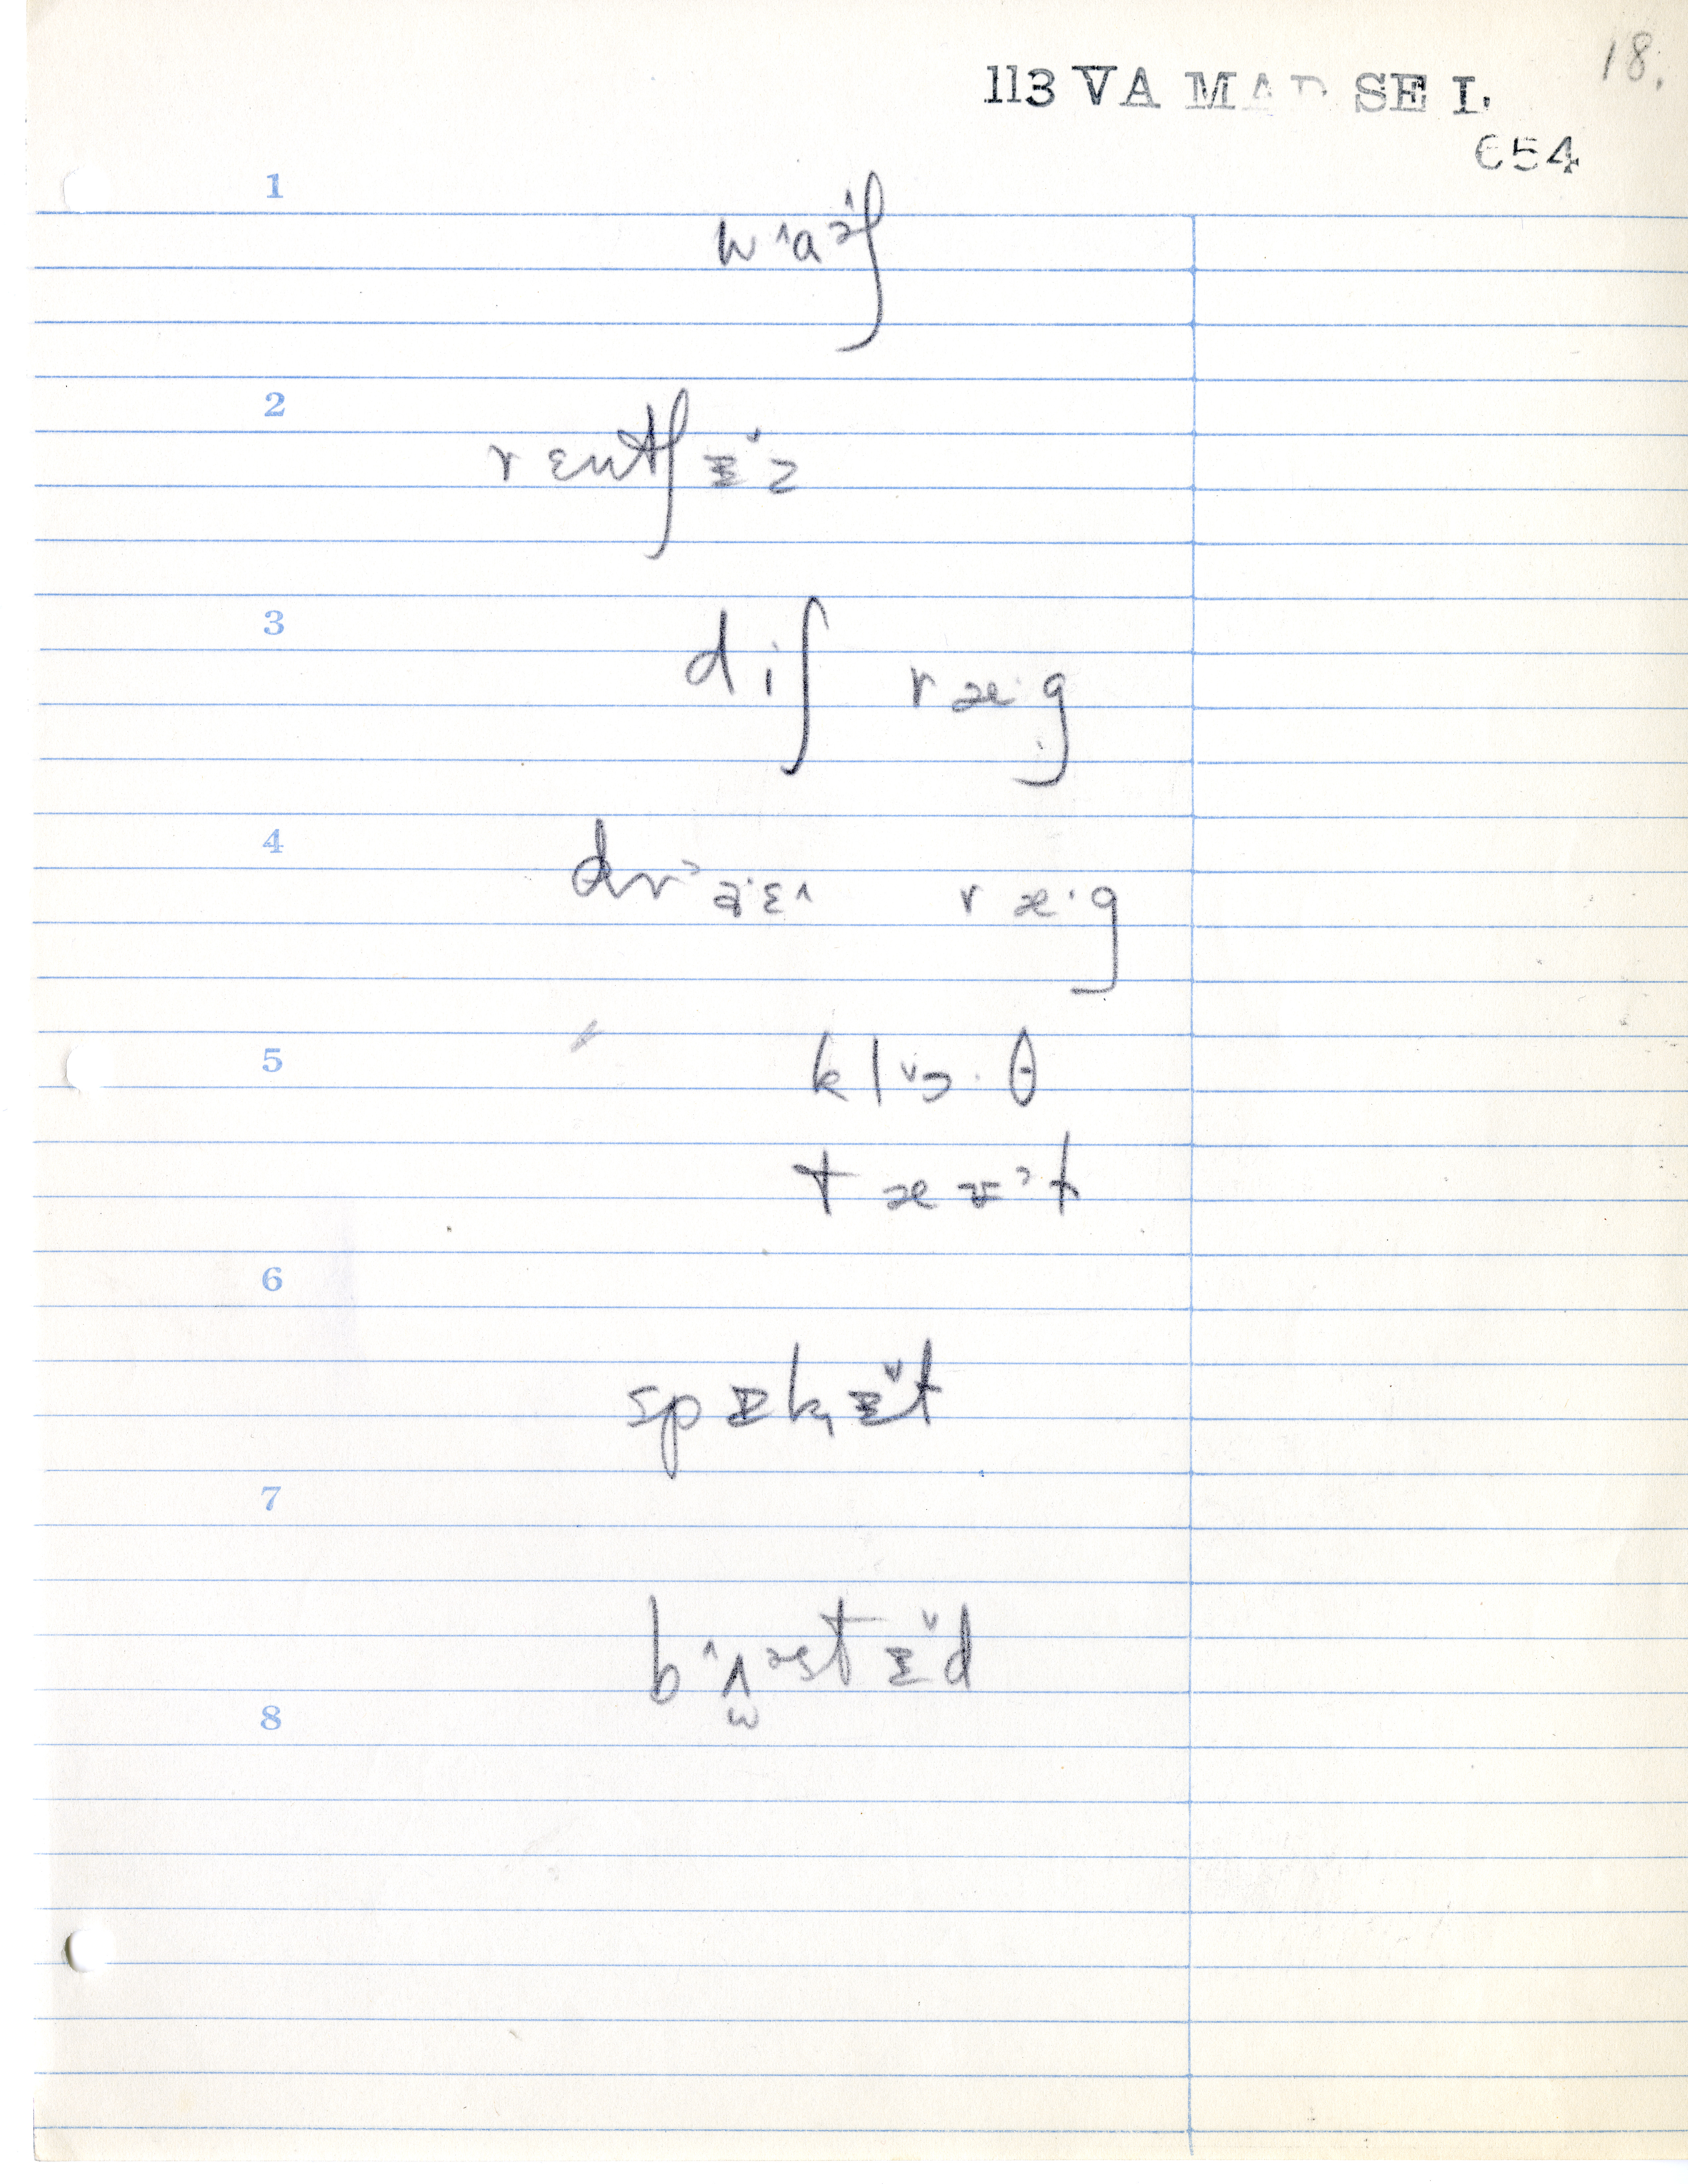 18.
113 VA MAD SEL
654
1
w˄aɚʃ
2
rɛntʃɪ̵˅z
3
diʃ ræ·g
4
dr˃aˑɛ˄ ræ·g
5
kl˅ɔ·θ
tæʊ˃t
6
spɪkɪ̵˅t
7
b˄ʌɚstɪ̵˅d
8